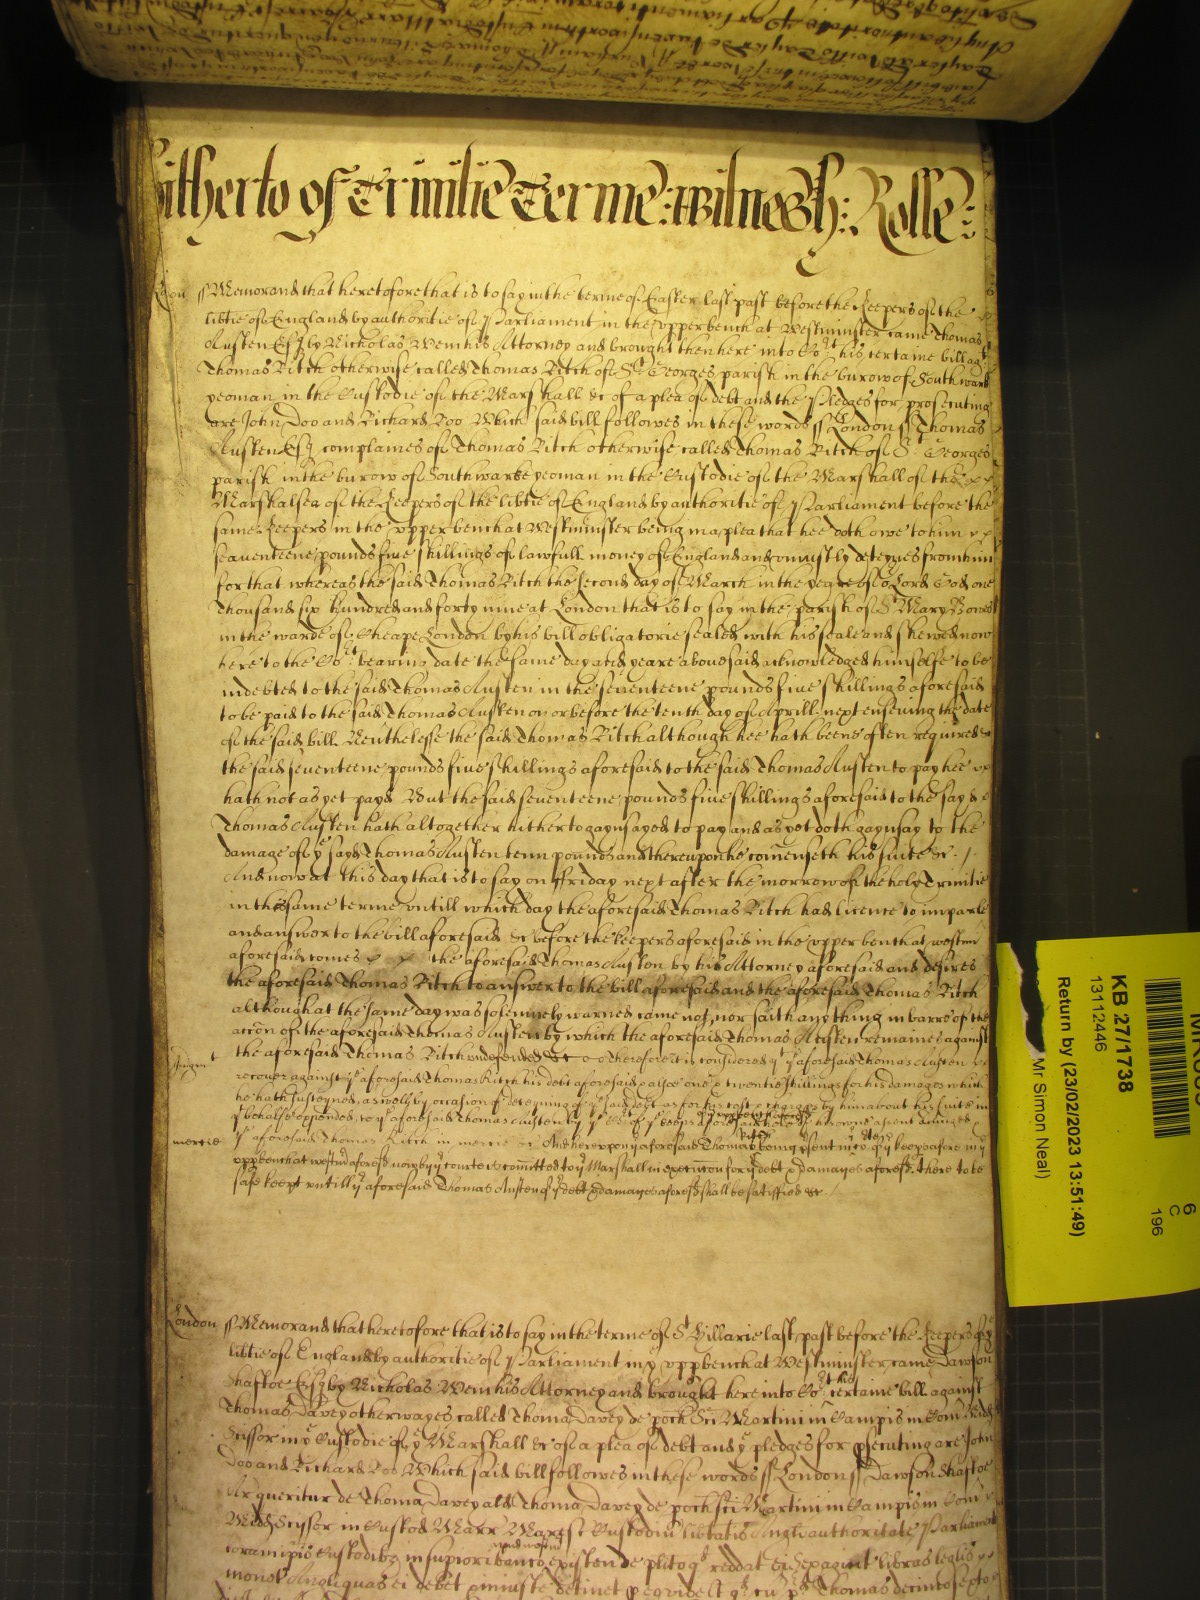 hitherto of Trinitie Terme: Witnesseth: Rolle:
London ss Memorand that heretofore that is to say in the terme of Easter last past before the Keepers of the
libtie of England by authoritie of Parliament in the upper bench at Westminster came Thomas
Austen Esq by Nicholas Wem his Attorney and brought then here into Cort his certaine bill agt
Thomas Ritch otherwise called Thomas Ritch of St Georges parish in the burow of Southwark
yeoman in the Custodie of the Marshall &c of a plea of debt and the Pledges for prosecuting
are John Doo and Richard Roo Which said bill followes in these words ss London ss Thomas
Austen Esq complaines of Thomas Ritch otherwise called Thomas Ritch of St Georges
parish in the burow of Southwarke yeoman in the Custodie of the Marshall of the
Marshalsea of the Keepers of the libtie of England by authoritie of Parliament before the
same Keepers in the upper bench at Westminster being in a plea that hee doth owe to him
seaventeene pounds five shillings of lawfull money of England and uniustly deteynes from him
for that whereas the said Thomas Ritch the second day of March in the yeare of or Lord God one
thousand six hundred and forty nine at London that is to say in the parish of St Mary Bowes
in the warde of Cheape London by his bill obligatorie sealed with his seale and shewed now
here to the Cort bearing date the same day and yeare abovesaid acknowledged himselfe to be
indebted to the said Thomas Austen in the seventeene pounds five shillings aforesaid
to be paid to the said Thomas Austen on or before the tenth day of Aprill next ensueing the date
of the said bill Neuthelesse the said Thomas Ritch although hee hath beene often required &c
the said seventeene pounds five shillings aforesaid to the said Thomas Austen to pay hee
hath not as yet payd But the said seventeene pounds five shillings aforesaid to the sayd
Thomas Austen hath altogether hitherto gaynsayed to pay and as yet doth gaynsay to the
damage of ye sayd Thomas Austen tenn pounds and thereupon he comenseth his suite &c
And now at this day that is to say on ffriday next after the morrow of the holy Trinitie
in the same terme untill which day the aforesaid Thomas Ritch had licence to imparle
and answer to the bill aforesaid &c before the keepers aforesaid in the upper bench at westmr
aforesaid comes the aforesaid Thomas Austen by his Attorney aforesaid and desires
the aforesaid Thomas Ritch to answer to the bill aforesaid and the aforesaid Thomas Ritch
although at the same day was solemnely warned came not, nor saith any thing in barre of the
accon of the aforesaid Thomas Austen by which the aforesaid Thomas Austen remaines against
the aforesaid Thomas Ritch undefended &c Therefore it is considered yt ye aforesaid Thomas Austen
Judgmt recover against ye aforesaid Thomas Ritch his debt aforesaid & alsoe one & twentie shillings for his damages which
he hath susteyned aswell by occasion of deteyning of ye said debt as for his costs & charges by him about his suite in
yt behalfe expended to ye aforesaid Thomas Austen by ye Cort of ye keeps aforesaid
mercie ye aforesaid Thomas Ritch in mercie &c And hereupon ye aforesaid Thomas Ritch being psent in Cort
uppbench at westmr aforesd now by ye courte is comitted to ye Marshall in execution for ye debt & damages aforesd there to be
safe keept untill ye aforesaid Thomas Austen of ye debt & damages aforesd shall be satisfied &c
London ss Memorand that heretofore that is to say in the terme of St Hillarie last past before the Keepers of ye
libtie of England by authoritie of Parliament in ye uppbench at Westminster came Dawson
Shaftoe Esq by Nicholas Wem his Attorney and brought here into Cort his certaine bill against
Thomas Davey otherwayes called Thoma Davey de poch Sci Martini in Campis in Com Midd
Scissor in ye Custodie of ye Marshall &c of a plea of debt and ye pledges for psecuting are John
Doo and Richard Roo Which said bill followes in these words ss London ss Dawson Shaftoe
Ar queritur de Thoma Davey als Thoma Davey de poch sci Martini in Campis in Com
Midd Scissor in Custod Marr Maresc Custodiu libtatis Angl authoritate Parliament
coram ipis Custodibz in supiori banco existen de plito qd reddat ei Sexagint libras leglis
monet Angl quas ei debet & iniuste detinet p eo videlt qd cu pd Thomas decimo sexto
KB 27/1738
13112446
Return by (23/02/2023 13:51:49)
Mr Simon Neal)
6
C
196